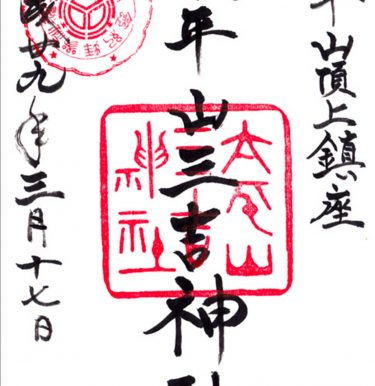 平山頂上鎮座
平山三吉神社
成廿九年三月十七日
太平山
三吉
神社